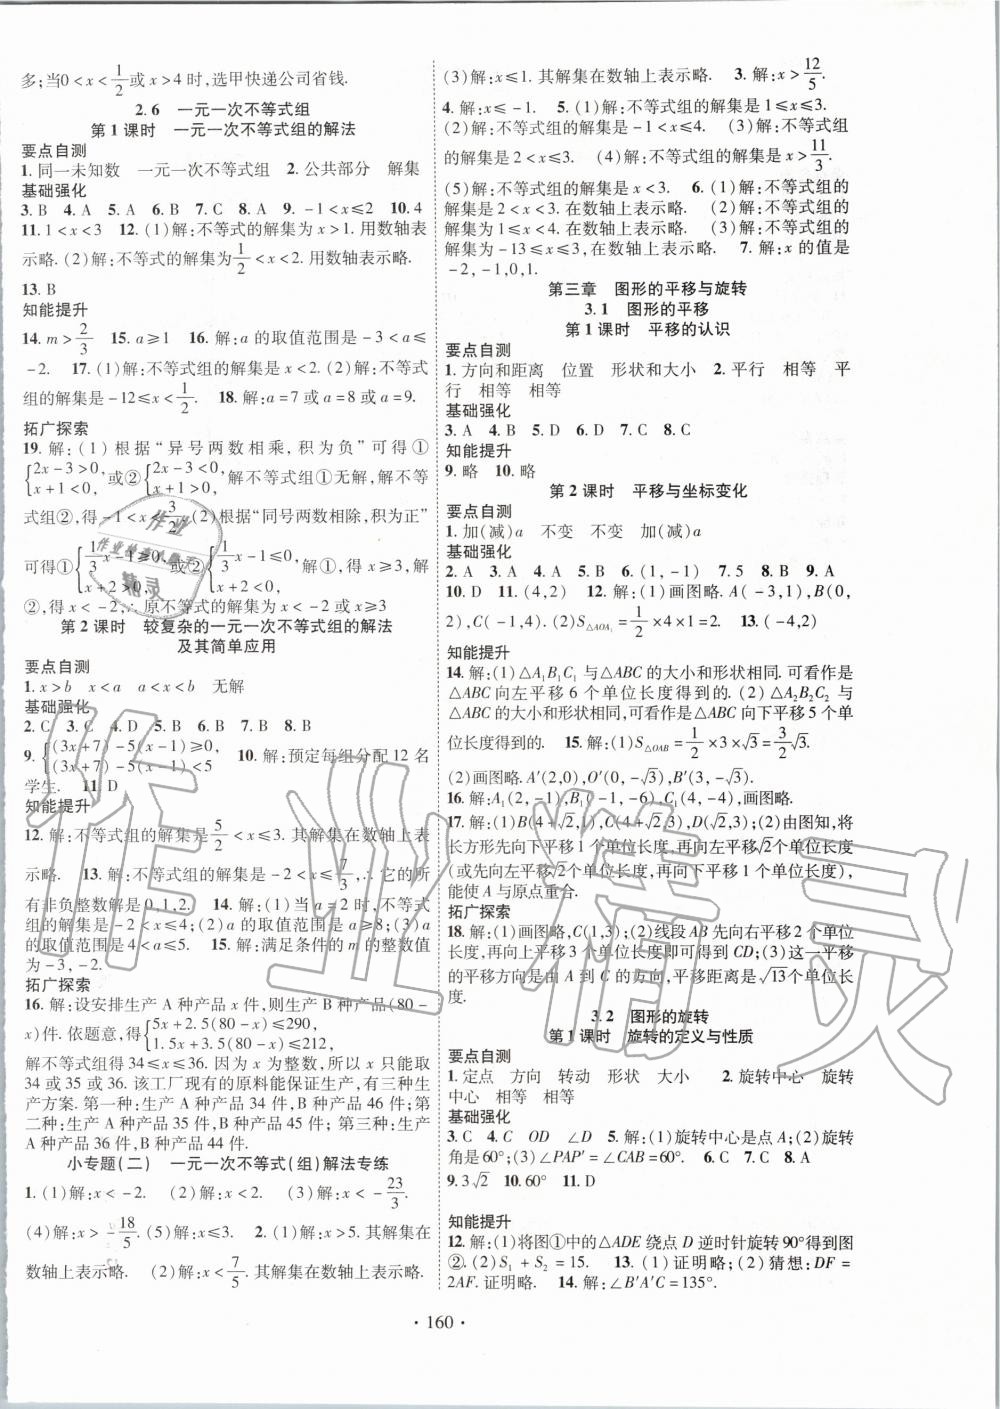 多;当0<x<1/2或x>4时,选甲快递公司省钱.
2.6 一元一次不等式组
第1课时 一元一次不等式组的解法
要点自测
1.同一未知数 一元一次不等式组 2.公共部分 解集
基础强化
3.B 4.A 5.A 6.B 7.C 8.A 9.-1<x≤2 10.4
11.1<x<3 12.(1)解:不等式的解集为x>1.用数轴表
示略.(2)解:不等式的解集为1/2<x<2.用数轴表示略.
13.B
知能提升
14.m>2/3 15.a≥1 16.解:a的取值范围是-3<a≤
-2. 17.(1)解:不等式组的解集是x<2.(2)解:不等式
组的解集是-12≤x<1/2. 18.解:a=7或a=8或a=9.
拓广探索
19.解:(1)根据“异号两数相乘,积为负”可得①
{2x-3>0, x+1<0,或②{2x-3<0, x+1>0.解不等式组①无解,解不等
式组②,得-1<x<3/2.(2)根据“同号两数相除,积为正”
可得①{1/3x-1≥0, x+2>0,或②{1/3x-1≤0, x+2<0,解①,得x≥3,解
②,得x<-2,∴原不等式的解集为x<-2或x≥3
第2课时 较复杂的一元一次不等式组的解法
及其简单应用
要点自测
1.x>b x<a a<x<b 无解
基础强化
2.C 3.C 4.D 5.B 6.B 7.B 8.B
9.{(3x+7)-5(x-1)≥0, (3x+7)-5(x-1)<5 10.解:预定每组分配12名
学生. 11.D
知能提升
12.解:不等式组的解集是5/2<x≤3.其解集在数轴上表
示略. 13.解:不等式组的解集是-2<x≤7/3,∴它的所
有非负整数解是0,1,2. 14.解:(1)当a=2时,不等式
组的解集是-2<x≤4;(2)a的取值范围是a≥8;(3)a
的取值范围是4<a≤5. 15.解:满足条件的m的整数值
为-3,-2.
拓广探索
16.解:设安排生产A种产品x件,则生产B种产品(80-
x)件.依题意,得{5x+2.5(80-x)≤290, 1.5x+3.5(80-x)≤212,
解不等式组得34≤x≤36.因为x为整数,所以x只能取
34或35或36.该工厂现有的原料能保证生产,有三种生
产方案.第一种:生产A种产品34件,B种产品46件;第
二种:生产A种产品35件,B种产品45件;第三种:生产
A种产品36件,B种产品44件.
小专题(二) 一元一次不等式(组)解法专练
1.(1)解:x<-2. (2)解:x<2. (3)解:x<-23/3.
(4)解:x>-18/5.(5)解:x≤3. 2.(1)解:x>5.其解集在
数轴上表示略. (2)解:x<7/5.其解集在数轴上表示略.
(3)解:x≤1.其解集在数轴上表示略. 3.解:x>12/5.
4.解:x≤-1. 5.(1)解:不等式组的解集是1≤x≤3.
(2)解:不等式组的解集是-1<x≤4. (3)解:不等式组
的解集是2<x≤3. (4)解:不等式组的解集是x>11/3.
(5)解:不等式组的解集是x<3. 6.(1)解:不等式组的
解集是2<x<3.在数轴上表示略.(2)解:不等式组的解
集为1≤x<4.在数轴上表示略.(3)解:不等式组的解
集为-13≤x≤3,在数轴上表示略. 7.解:x的值是
-2,-1,0,1.
第三章 图形的平移与旋转
3.1 图形的平移
第1课时 平移的认识
要点自测
1.方向和距离 位置 形状和大小 2.平行 相等 平
行 相等 相等
基础强化
3.A 4.B 5.D 6.D 7.C 8.C
知能提升
9.略 10.略
第2课时 平移与坐标变化
要点自测
1.加(减)a 不变 不变 加(减)a
基础强化
2.A 3.A 4.A 5.B 6.(1,-1) 7.5 8.B 9.A
10.D 11.(4,2) 12.解:(1)画图略.A(-3,1),B(0,
2),C(-1,4).(2)S△AOA₁=1/2×4×1=2. 13.(-4,2)
知能提升
14.解:(1)△A₁B₁C₁与△ABC的大小和形状相同.可看作是
△ABC向左平移6个单位长度得到的.(2)△A₂B₂C₂与
△ABC的大小和形状相同,可看作是△ABC向下平移5个单
位长度得到的. 15.解:(1)S△OAB=1/2×3×√3=3/2√3.
(2)画图略.A′(2,0),O′(0,-√3),B′(3,-√3).
16.解:A₁(2,-1),B₁(-1,-6),C₁(4,-4),画图略.
17.解:(1)B(4+√2,1),C(4+√2,3),D(√2,3);(2)由图知,将
长方形先向下平移1个单位长度,再向左平移√2个单位长度
(或先向左平移√2个单位长度,再向下平移1个单位长度),
能使A与原点重合.
拓广探索
18.解:(1)画图略,C(1,3);(2)线段AB先向右平移2个单位
长度,再向上平移1个单位长度即可得到CD;(3)这一平移
的平移方向是由A到C的方向,平移距离是√13个单位长
度.
3.2 图形的旋转
第1课时 旋转的定义与性质
要点自测
1.定点 方向 转动 形状 大小 2.旋转中心 旋转
中心 相等 相等
基础强化
3.C 4.C OD ∠D 5.解:(1)旋转中心是点A;(2)旋转
角是60°;(3)∠PAP′=∠CAB=60° 6.C 7.C 8.A
9.3√2 10.60° 11.D
知能提升
12.解:(1)将图①中的△ADE绕点D逆时针旋转90°得到图
②.(2)S₁+S₂=15. 13.(1)证明略;(2)猜想:DF=
2AF.证明略. 14.解:∠B′A′C=135°.
·160·
作业精灵
作业
精灵